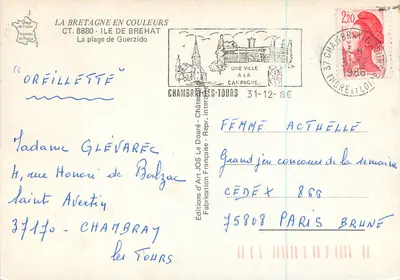 LA BRETAGNE EN COULEURS
CT. 8880 - ILE DE BREHAT
La plage de Guerzido
"OREILLETTE"
Madame GLÉVAREC
4, rue Honoré de Balzac
Saint Avertin
37170 - CHAMBRAY
les TOURS
Editions d'Art JOS Le Doaré - Château
Fabrication Française - Repr. inter
UNE VILLE
A LA
CAMPAGNE
CHAMBRAY-LES-TOURS
31-12-86
37 CHAMBRAY
1986
INDRE ET LOI
2,20
FEMME ACTUELLE
Grand jeu concours de la semaine
CEDEX 866
75808 PARIS BRUNE